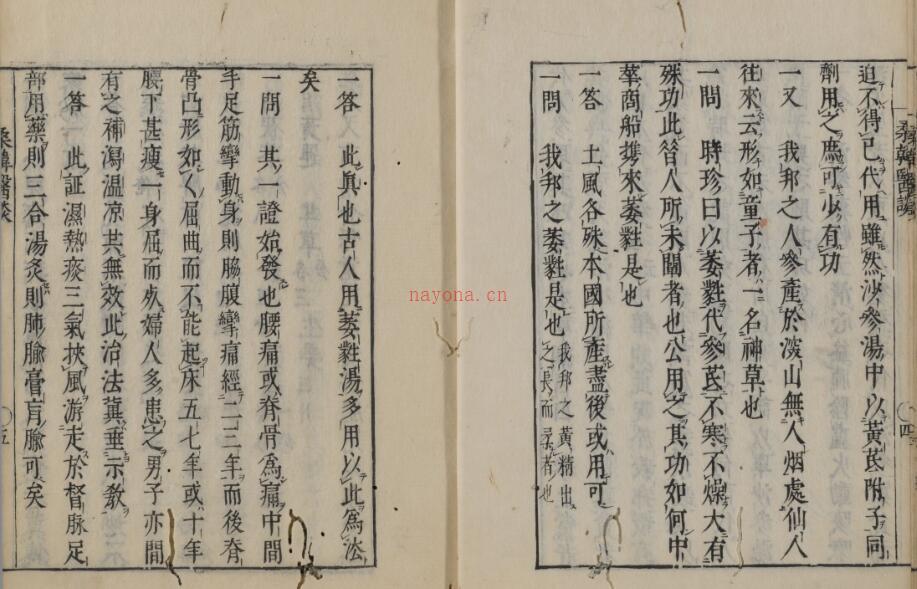 迫不得已代用雖然沙參湯中以黃芪附子同
劑用之爲可少有功
一又　我邦之人參產於深山無人烟處仙人
往來云形如童子者一名神草也
一問　時珍曰以萎蕤代參芪不寒不燥大有
殊功此昝人所未闡者也公用之其功如何中
華商船携來萎蕤是也
一答　土風各殊本國所產盡後或用可
一問　我邦之萎蕤是也我邦之黃精出
之長而柔者也
桑韓醫談
四
一答　此眞也古人用萎蕤湯多用以此爲法
矣
一問　其一證始發也腰痛或脊骨爲痛中間
手足筋攣動身則脇腹攣痛經二三年而後脊
骨凸形如く屈曲而不能起床五七年或十年
腰下甚瘦一身屈而死婦人多患之男子亦間
有之補瀉溫凉共無效此治法冀垂示敎
一答　此証濕熱痰三氣挾風游走於督脉足
部用藥則三合湯灸則肺腧膏肓腧可矣
桑韓醫談
五
nayona.cn